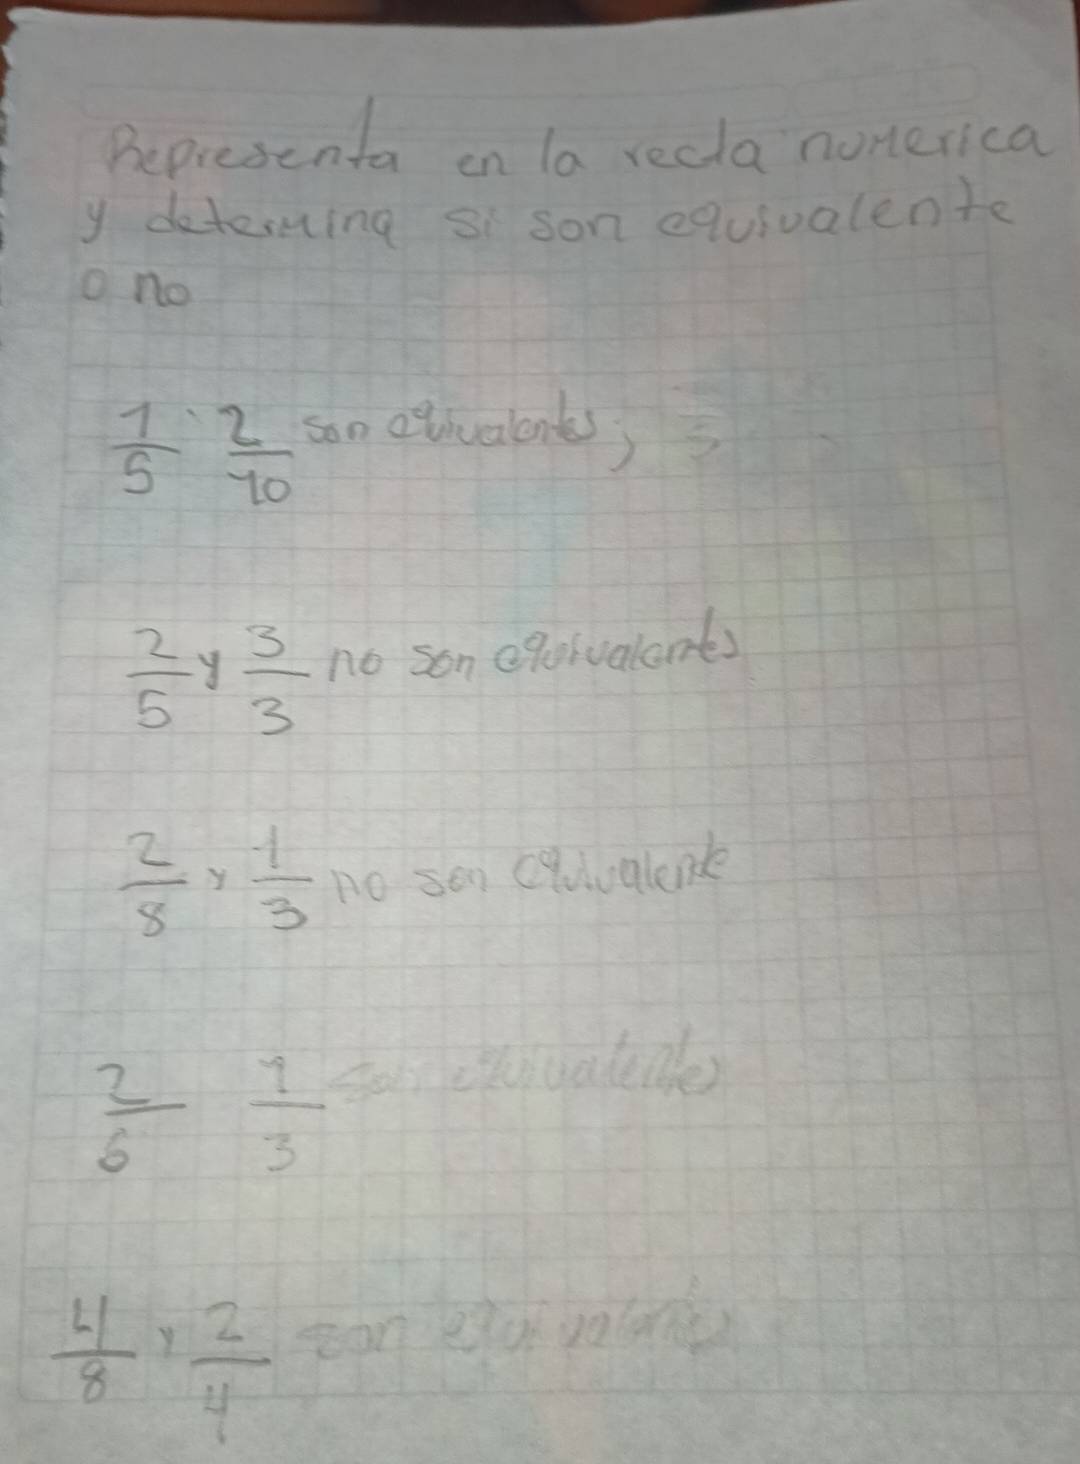 Representa en la recta numerica
y determina si son equivalente
o no
1/5 2/10 son equivalentes;
2/5 y 3/3 no son equivalentes
2/8 y 1/3 no son equivalente
2/6 1/3 son equivalentes
4/8 y 2/4 son equivalentes